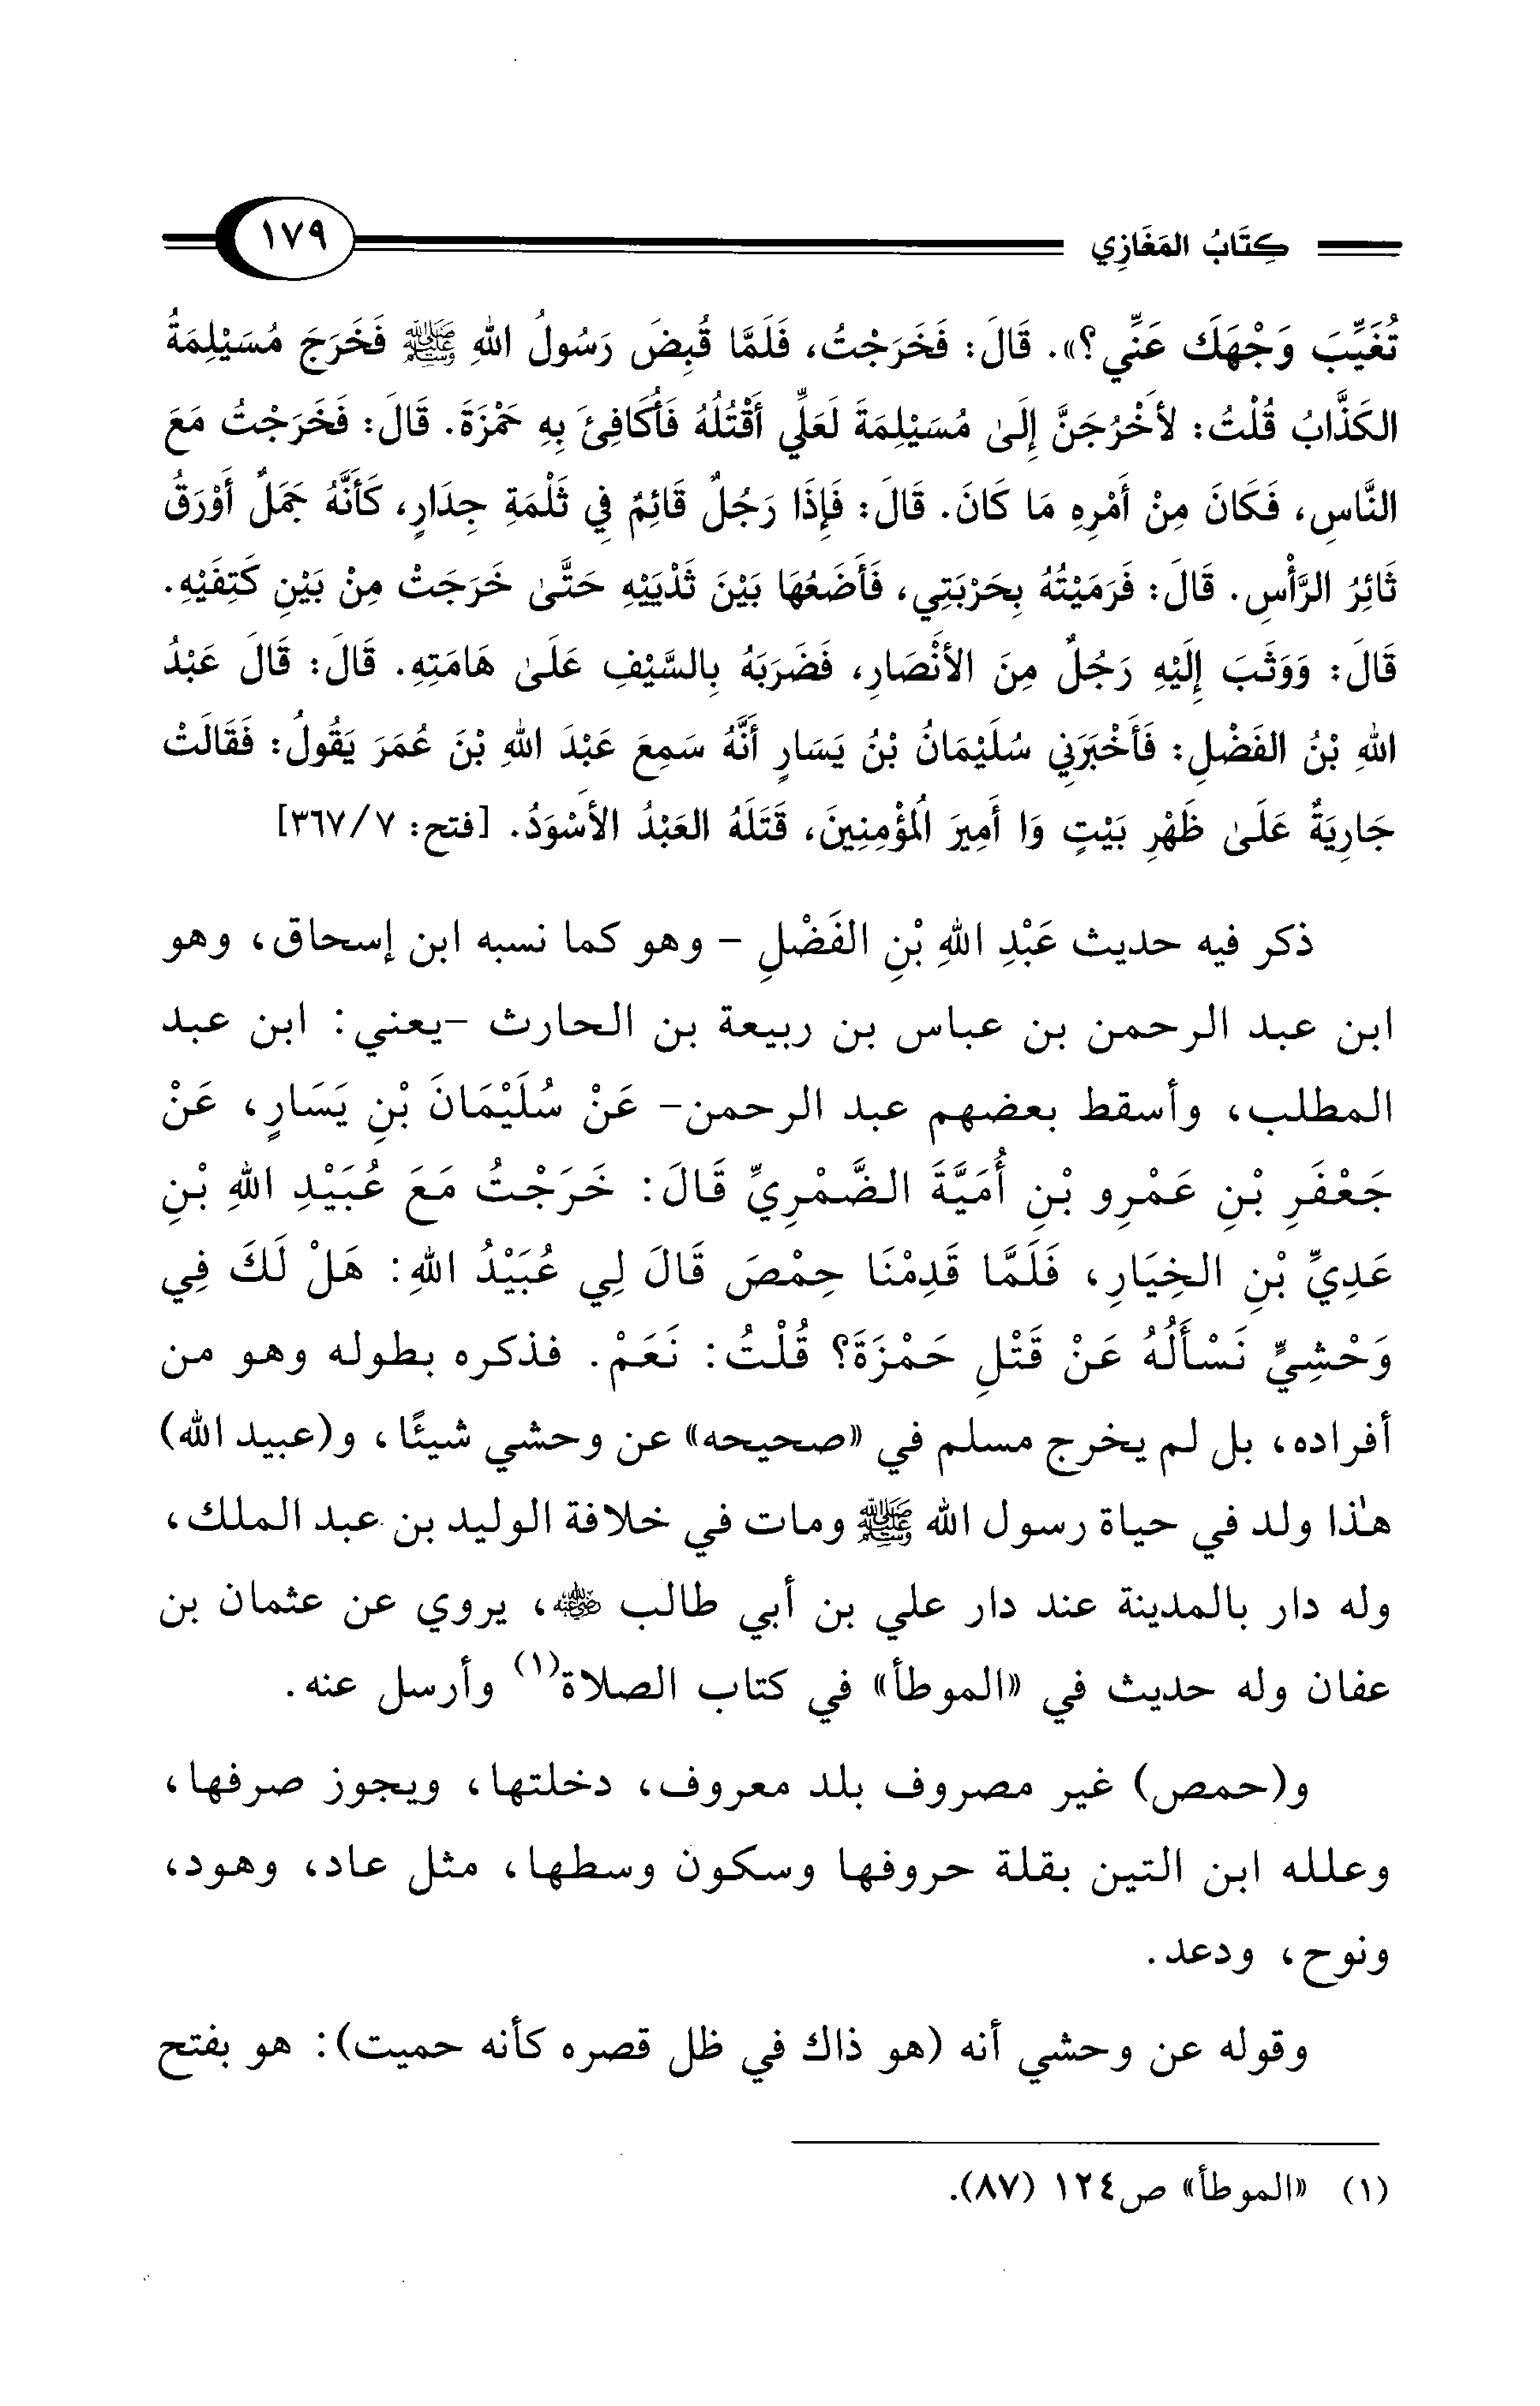 كِتَابُ المَغَازِي ١٧٩
تُغَيِّبَ وَجْهَكَ عَنِّي؟». قَالَ: فَخَرَجْتُ، فَلَمَّا قُبِضَ رَسُولُ اللهِ ﷺ فَخَرَجَ مُسَيْلِمَةُ
الكَذَّابُ قُلْتُ: لأَخْرُجَنَّ إِلَىٰ مُسَيْلِمَةَ لَعَلِّي أَقْتُلُهُ فَأُكَافِئَ بِهِ حَمْزَةَ. قَالَ: فَخَرَجْتُ مَعَ
النَّاسِ، فَكَانَ مِنْ أَمْرِهِ مَا كَانَ. قَالَ: فَإِذَا رَجُلٌ قَائِمٌ فِي ثَلْمَةِ جِدَارٍ، كَأَنَّهُ جَمَلٌ أَوْرَقُ
ثَائِرُ الرَّأْسِ. قَالَ: فَرَمَيْتُهُ بِحَرْبَتِي، فَأَضَعُهَا بَيْنَ ثَدْيَيْهِ حَتَّىٰ خَرَجَتْ مِنْ بَيْنِ كَتِفَيْهِ.
قَالَ: وَوَثَبَ إِلَيْهِ رَجُلٌ مِنَ الأَنْصَارِ، فَضَرَبَهُ بِالسَّيْفِ عَلَىٰ هَامَتِهِ. قَالَ: قَالَ عَبْدُ
اللهِ بْنُ الفَضْلِ: فَأَخْبَرَنِي سُلَيْمَانُ بْنُ يَسَارٍ أَنَّهُ سَمِعَ عَبْدَ اللهِ بْنَ عُمَرَ يَقُولُ: فَقَالَتْ
جَارِيَةٌ عَلَىٰ ظَهْرِ بَيْتٍ وَا أَمِيرَ الْمُؤْمِنِينَ، قَتَلَهُ العَبْدُ الأَسْوَدُ. [فتح: ٣٦٧/٧]
ذكر فيه حديث عَبْدِ اللهِ بْنِ الفَضْلِ - وهو كما نسبه ابن إسحاق، وهو
ابن عبد الرحمن بن عباس بن ربيعة بن الحارث -يعني: ابن عبد
المطلب، وأسقط بعضهم عبد الرحمن- عَنْ سُلَيْمَانَ بْنِ يَسَارٍ، عَنْ
جَعْفَرِ بْنِ عَمْرِو بْنِ أُمَيَّةَ الضَّمْرِيِّ قَالَ: خَرَجْتُ مَعَ عُبَيْدِ اللهِ بْنِ
عَدِيِّ بْنِ الخِيَارِ، فَلَمَّا قَدِمْنَا حِمْصَ قَالَ لِي عُبَيْدُ اللهِ: هَلْ لَكَ فِي
وَحْشِيٍّ نَسْأَلُهُ عَنْ قَتْلِ حَمْزَةَ؟ قُلْتُ: نَعَمْ. فذكره بطوله وهو من
أفراده، بل لم يخرج مسلم في «صحيحه» عن وحشي شيئًا، و(عبيد الله)
هٰذا ولد في حياة رسول الله ﷺ ومات في خلافة الوليد بن عبد الملك،
وله دار بالمدينة عند دار علي بن أبي طالب رضي الله عنه، يروي عن عثمان بن
عفان وله حديث في «الموطأ» في كتاب الصلاة(١) وأرسل عنه.
و(حمص) غير مصروف بلد معروف، دخلتها، ويجوز صرفها،
وعلله ابن التين بقلة حروفها وسكون وسطها، مثل عاد، وهود،
ونوح، ودعد.
وقوله عن وحشي أنه (هو ذاك في ظل قصره كأنه حميت): هو بفتح
(١) «الموطأ» ص١٢٤ (٨٧).